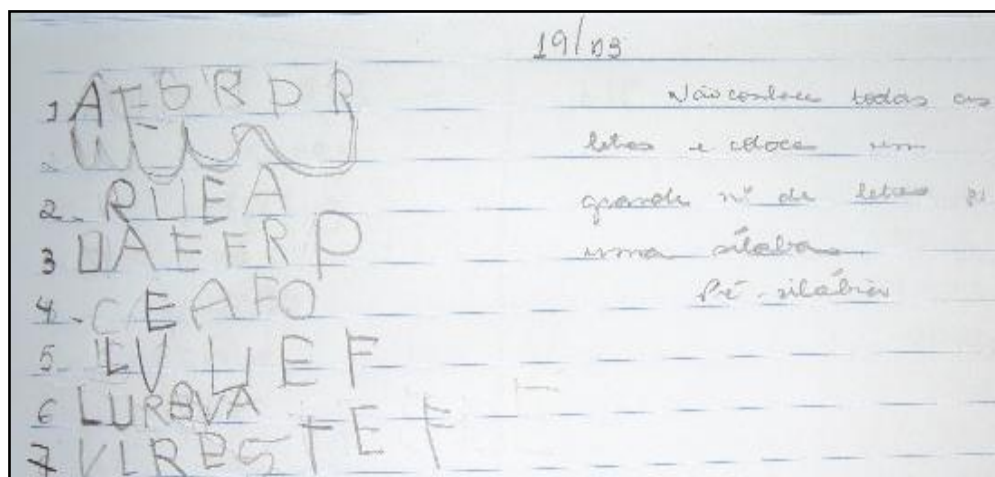 19/03
1 A E G R P R
2. R U E A
3 U A E F R P
4. C E A F O
5. L V U E F
6 L U R B V A
7 V L R P S T E F
Não conhece todas as
letras e coloca um
grande nº de letras p/
uma sílaba
Pré-silábico